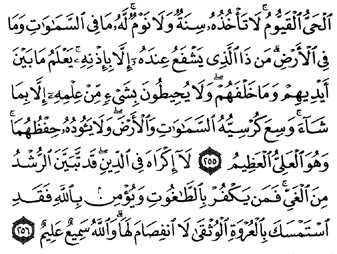 ٱلْحَىُّ ٱلْقَيُّومُ ۚ لَا تَأْخُذُهُۥ سِنَةٌ وَلَا نَوْمٌ ۚ لَّهُۥ مَا فِى ٱلسَّمَـٰوَٰتِ وَمَا
فِى ٱلْأَرْضِ ۗ مَن ذَا ٱلَّذِى يَشْفَعُ عِندَهُۥٓ إِلَّا بِإِذْنِهِۦ ۚ يَعْلَمُ مَا بَيْنَ
أَيْدِيهِمْ وَمَا خَلْفَهُمْ ۖ وَلَا يُحِيطُونَ بِشَىْءٍ مِّنْ عِلْمِهِۦٓ إِلَّا بِمَا
شَآءَ ۚ وَسِعَ كُرْسِيُّهُ ٱلسَّمَـٰوَٰتِ وَٱلْأَرْضَ ۖ وَلَا يَـُٔودُهُۥ حِفْظُهُمَا ۚ
وَهُوَ ٱلْعَلِىُّ ٱلْعَظِيمُ ٢٥٥ لَآ إِكْرَاهَ فِى ٱلدِّينِ ۖ قَد تَّبَيَّنَ ٱلرُّشْدُ
مِنَ ٱلْغَىِّ ۚ فَمَن يَكْفُرْ بِٱلطَّـٰغُوتِ وَيُؤْمِنۢ بِٱللَّهِ فَقَدِ
ٱسْتَمْسَكَ بِٱلْعُرْوَةِ ٱلْوُثْقَىٰ لَا ٱنفِصَامَ لَهَا ۗ وَٱللَّهُ سَمِيعٌ عَلِيمٌ ٢٥٦